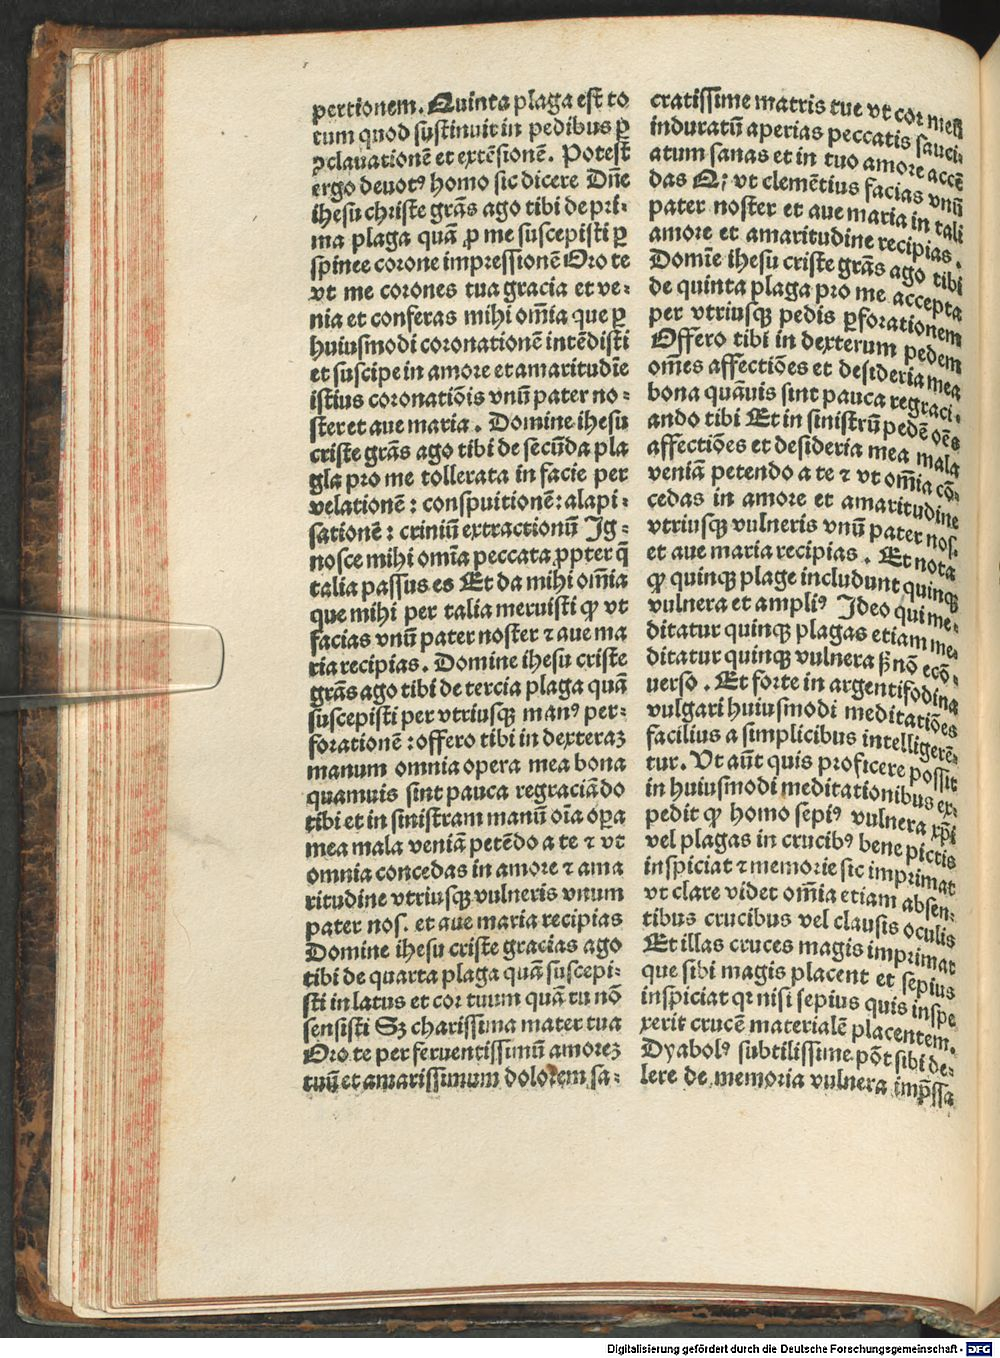 pertionem. Quinta plaga est to
tum quod sustinuit in pedibus ꝑ
ꝯclauationē et extēsionē. Potest
ergo deuotꝰ homo sic dicere Dñe
ihesu christe grãs ago tibi de pri-
ma plaga quã ꝓ me suscepisti ꝑ
spinee corone impressionē Oro te
vt me corones tua gracia et ve-
nia et conferas mihi om̃ia que ꝑ
huiusmodi coronationē intēdisti
et suscipe in amore et amaritudīe
istius coronatiōis vnū pater no-
ster et aue maria. Domine ihesu
criste grãs ago tibi de secūda pla
gla pro me tollerata in facie per
velationē: conspuitionē: alapi-
sationē: criniū extractionū Ig-
nosce mihi om̃ia peccata ꝓpter q̃
talia passus es Et da mihi om̃ia
que mihi per talia meruisti ꝙ vt
facias vnū pater noster ⁊ aue ma
ria recipias. Domine ihesu criste
grãs ago tibi de tercia plaga quã
suscepisti per vtriusqꝫ manꝰ per-
forationē: offero tibi in dexteraꝫ
manum omnia opera mea bona
quamuis sint pauca regraciãdo
tibi et in sinistram manū oīa oꝑa
mea mala veniã petēdo a te ⁊ vt
omnia concedas in amore ⁊ ama
ritudine vtriusqꝫ vulneris vnum
pater nos. et aue maria recipias
Domine ihesu criste gracias ago
tibi de quarta plaga quã suscepi-
sti in latus et cor tuum quã tu nō
sensisti Sꝫ charissima mater tua
Oro te per feruentissimū amoreꝫ
tuū et amarissimum dolorem sa-
cratissime matris tue vt cor meū
induratū aperias peccatis sauci-
atum sanas et in tuo amore accē
das Qꝫ vt clemētius facias vnū
pater noster et aue maria in tali
amore et amaritudine recipias.
Domīe ihesu criste grãs ago tibi
de quinta plaga pro me accepta
per vtriusqꝫ pedis ꝑforationem
Offero tibi in dexterum pedem
om̃es affectiōes et desideria mea
bona quãuis sint pauca regraci-
ando tibi Et in sinistrū pedē oēs
affectiōes et desideria mea mala
veniã petendo a te ⁊ vt om̃ia cō-
cedas in amore et amaritudine
vtriusqꝫ vulneris vnū pater nos.
et aue maria recipias. Et nota
ꝙ quinqꝫ plage includunt quinqꝫ
vulnera et ampliꝰ Ideo qui me-
ditatur quinqꝫ plagas etiam me-
ditatur quinqꝫ vulnera sꝫ nō ecō-
uerso. Et forte in argentifodina
vulgari huiusmodi meditatiōes
facilius a simplicibus intelligerē-
tur. Vt aūt quis proficere possit
in huiusmodi meditationibus ex-
pedit ꝙ homo sepiꝰ vulnera xp̃i
vel plagas in crucibꝰ bene pictis
inspiciat ⁊ memorie sic imprimat
vt clare videt om̃ia etiam absen-
tibus crucibus vel clausis oculis
Et illas cruces magis imprimat
que sibi magis placent et sepius
inspiciat qꝛ nisi sepius quis inspe
xerit crucē materialē placentem.
Dyabolꝰ subtilissime pōt sibi de-
lere de memoria vulnera imp̃ssa
Digitalisierung gefördert durch die Deutsche Forschungsgemeinschaft - DFG